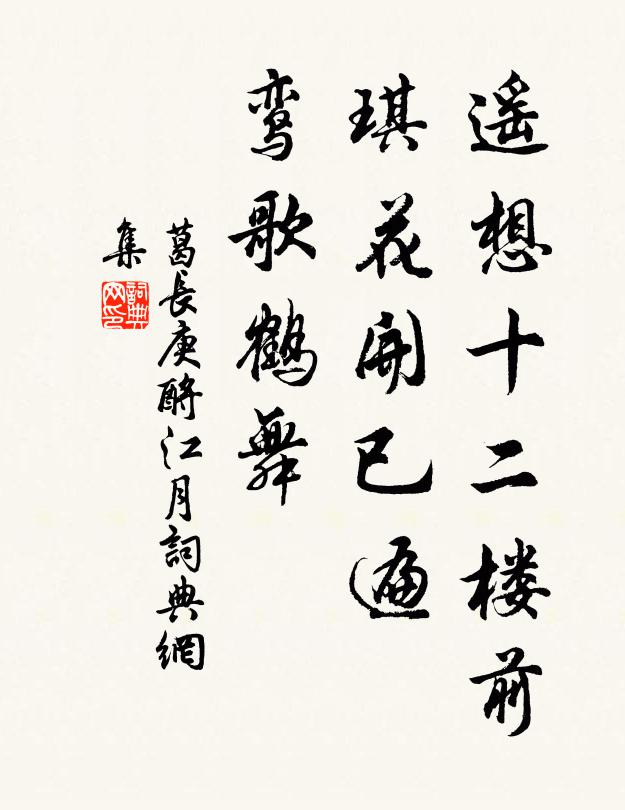 遥想十二楼前
琪花开已遍
鸾歌鹤舞
葛長庚酹江月詞典網
集
詞典
网印